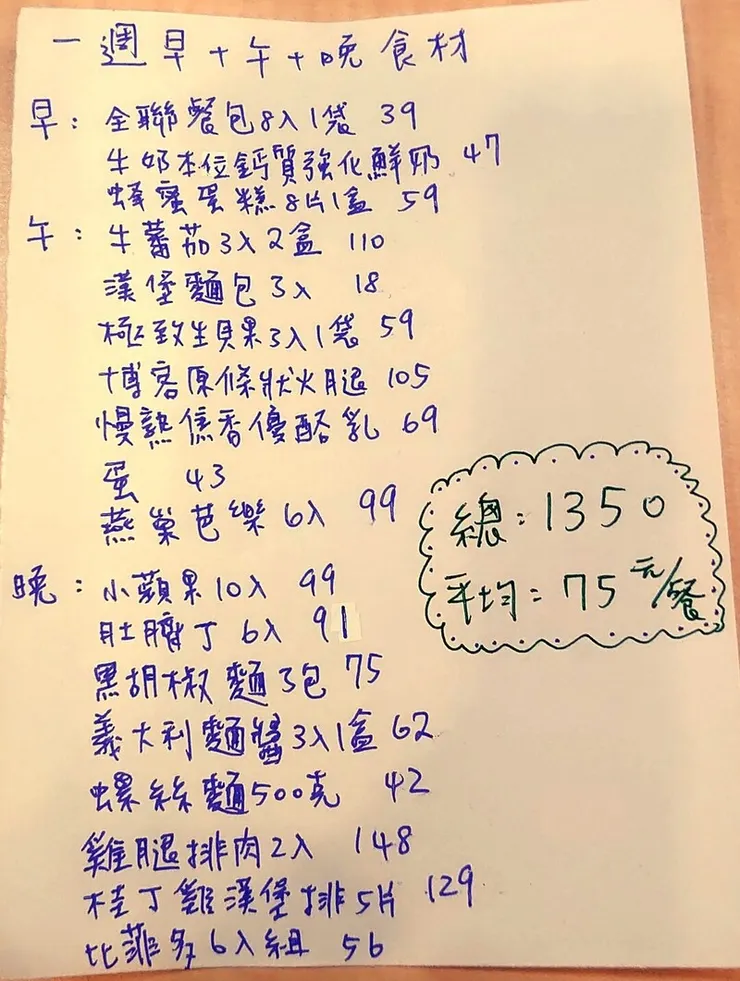 一週早+午+晚食材
早: 全聯餐包8入1袋 39
牛奶本位鈣質強化鮮奶 47
蜂蜜蛋糕8片1盒 59
午: 牛蕃茄3入2盒 110
漢堡麵包3入 18
極致生貝果3入1袋 59
博客原條狀火腿 105
慢熟焦香優酪乳 69
蛋 43
燕巢芭樂6入 99
總:1350
平均:75元/餐
晚: 小蘋果10入 99
肚臍丁6入 91
黑胡椒麵3包 75
義大利麵醬3入1盒 62
螺絲麵500克 42
雞腿排肉2入 148
桂丁雞漢堡排5片 129
比菲多6入組 56